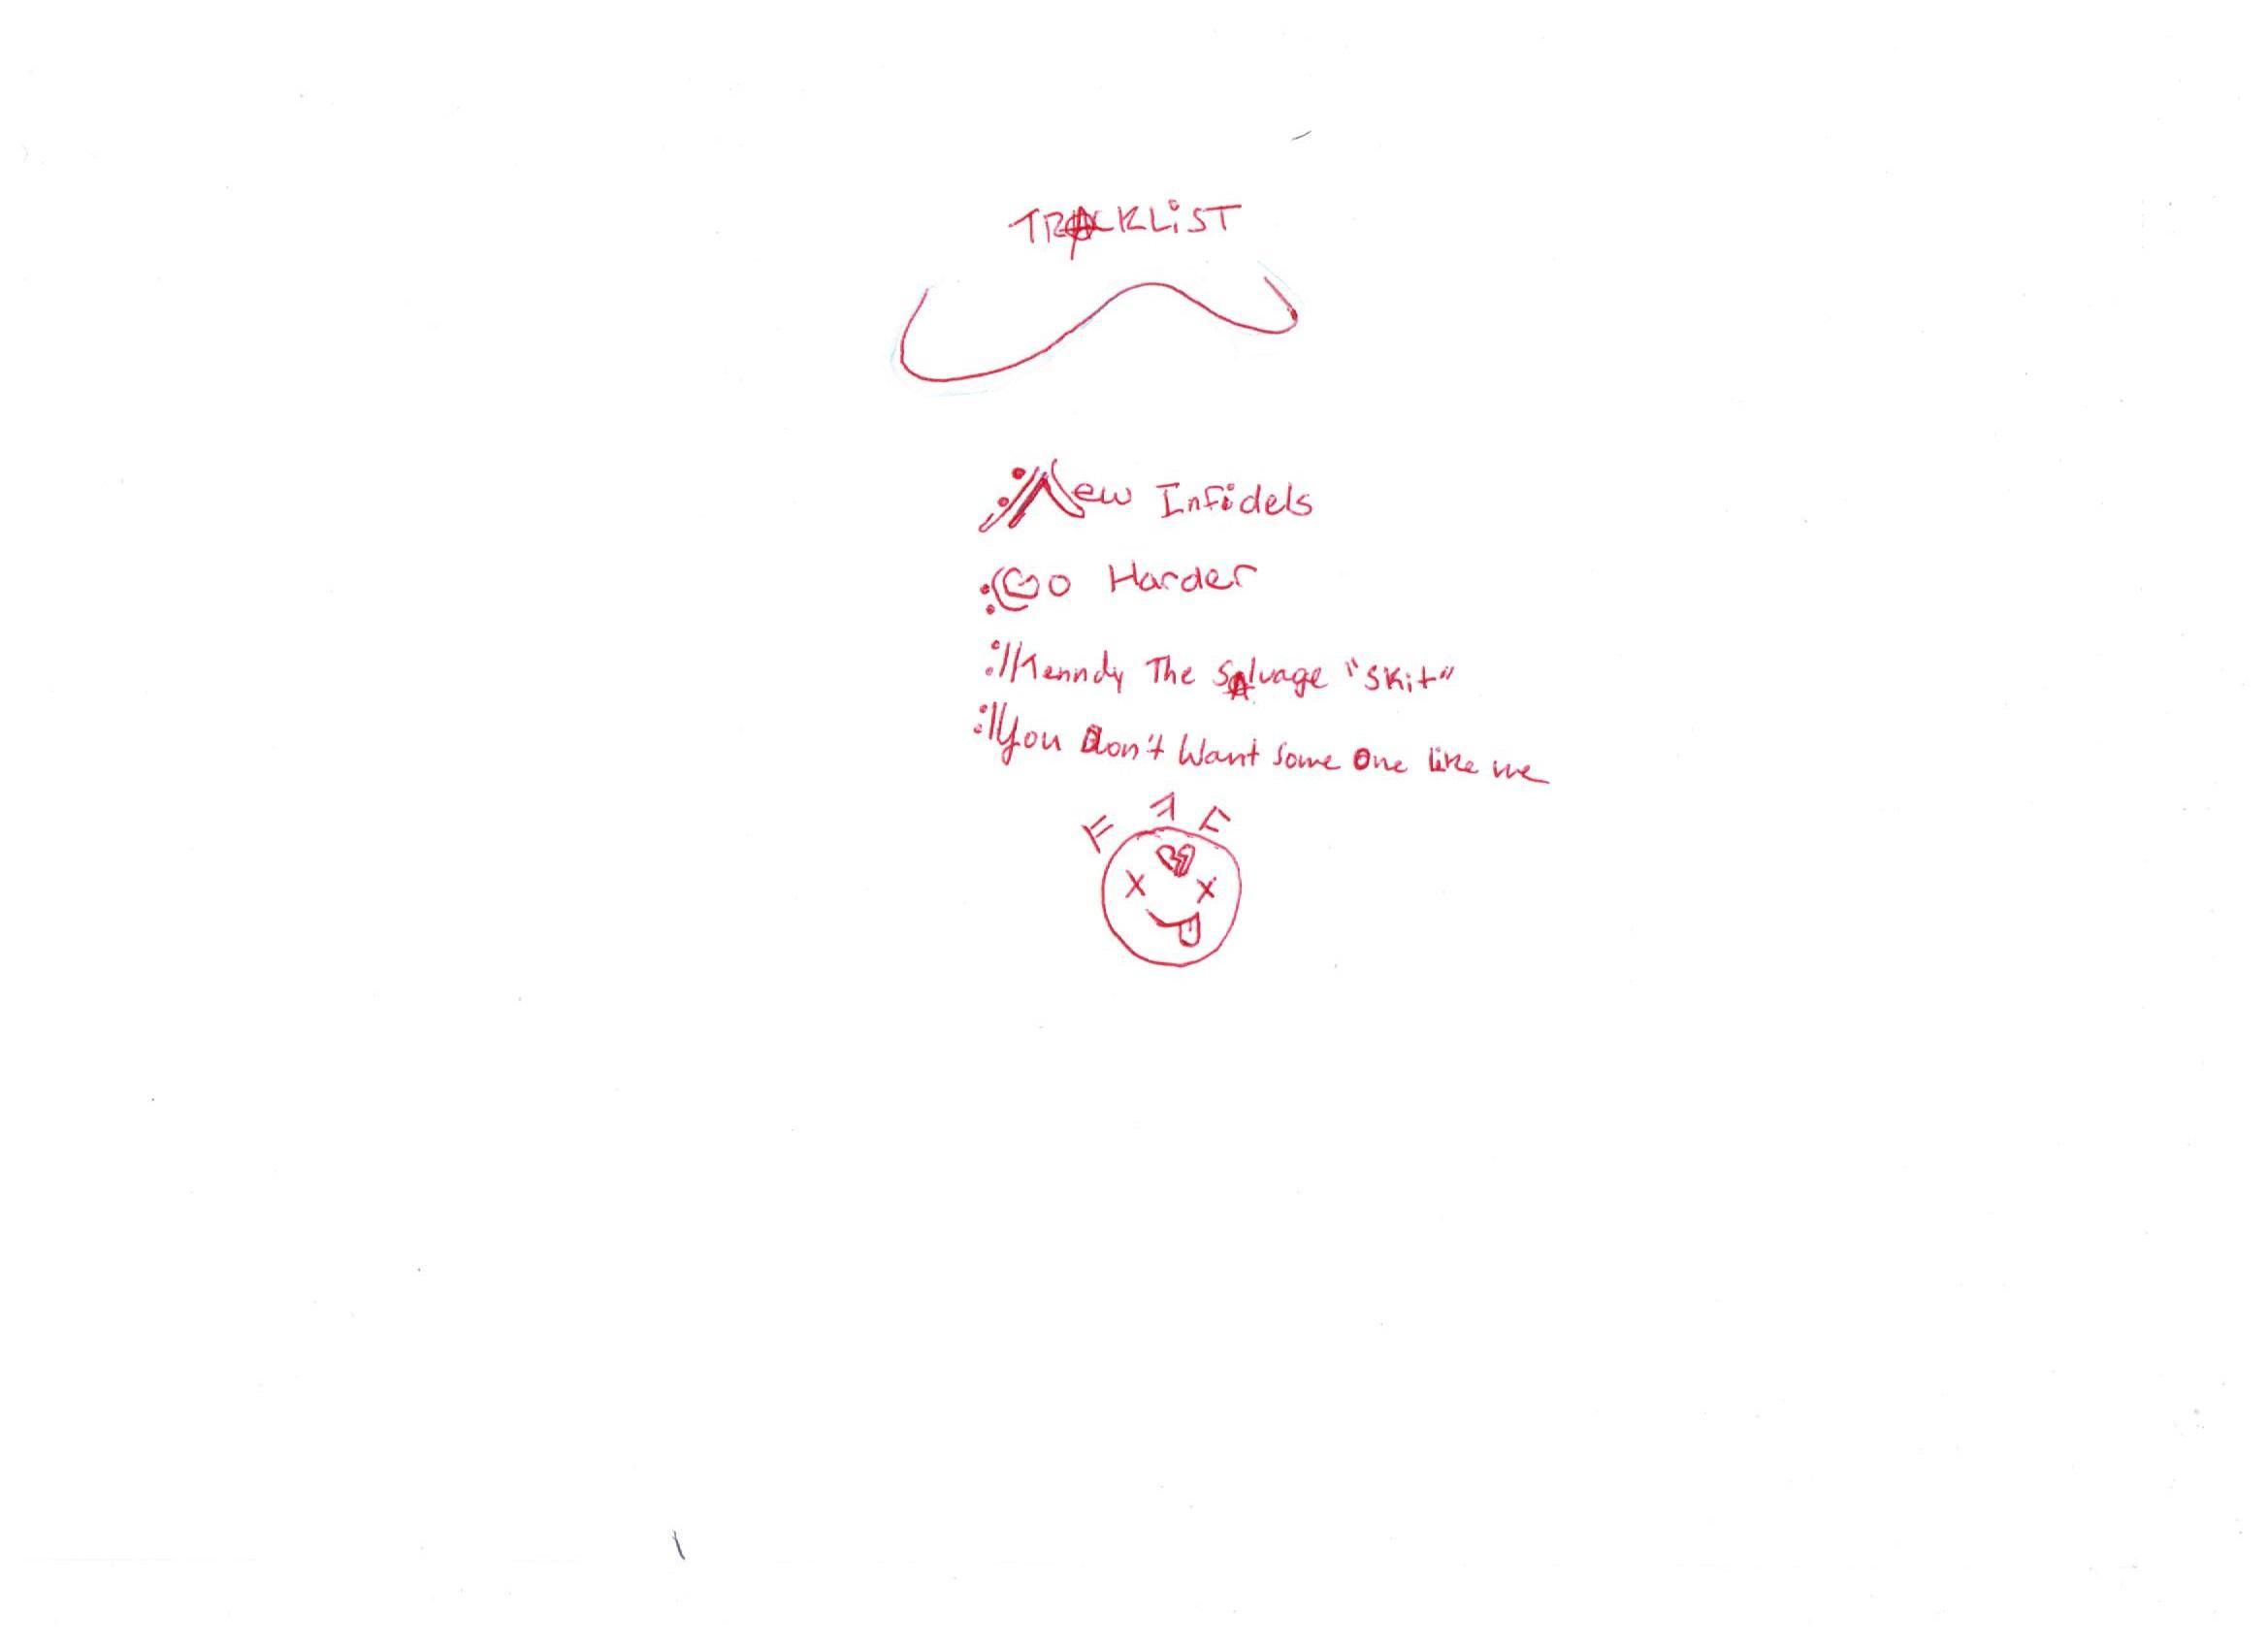 TRACKLiST
New Infidels
Go Harder
Kenndy The SAlvage "Skit"
You Don't Want Some One like me